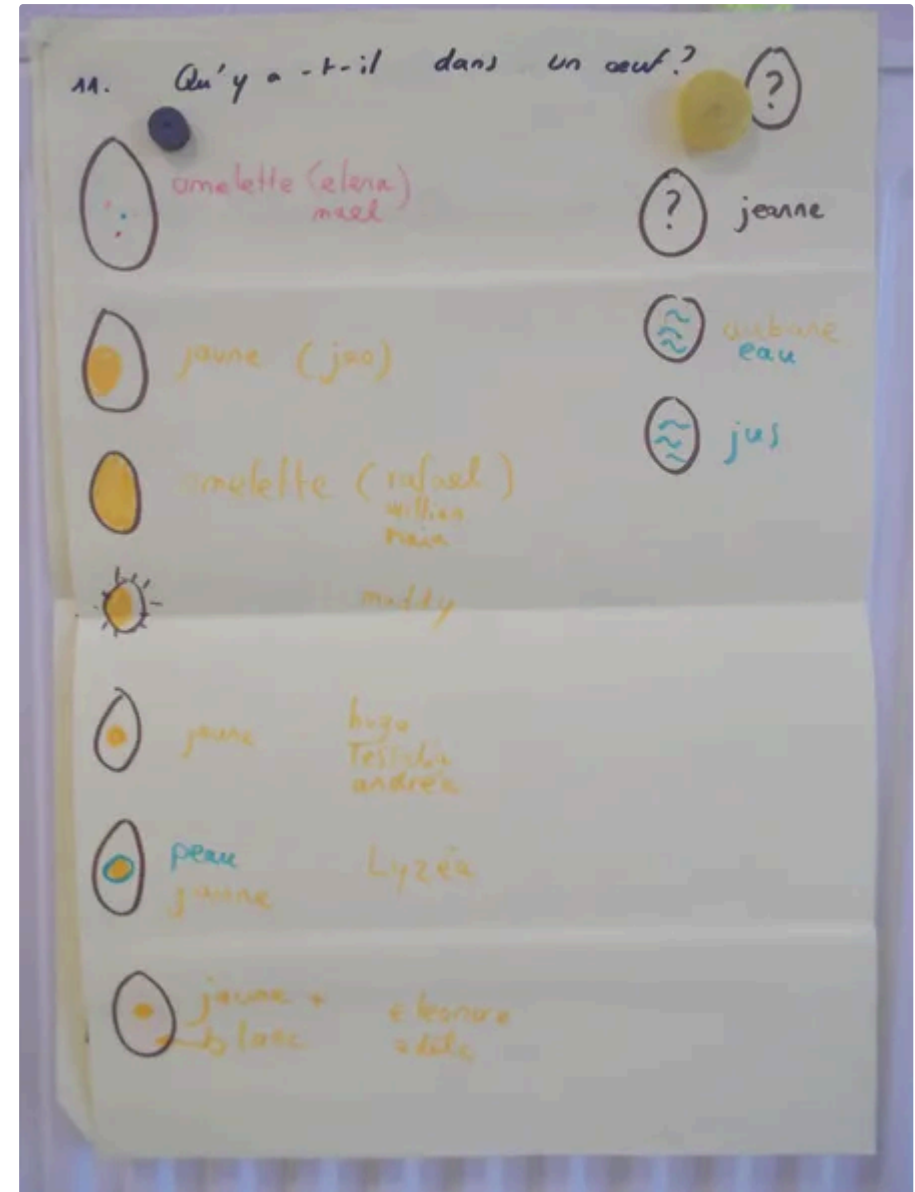 11. Qu'y a-t-il dans un œuf? ?
omelette (elena)
mael
jaune (jao)
omelette (rafael)
willian
maia
maddy
jaune hugo
andréa
peau
jaune Lyzéa
jaune +
blanc
eleonore
adèle
? jeanne
aubane
eau
jus